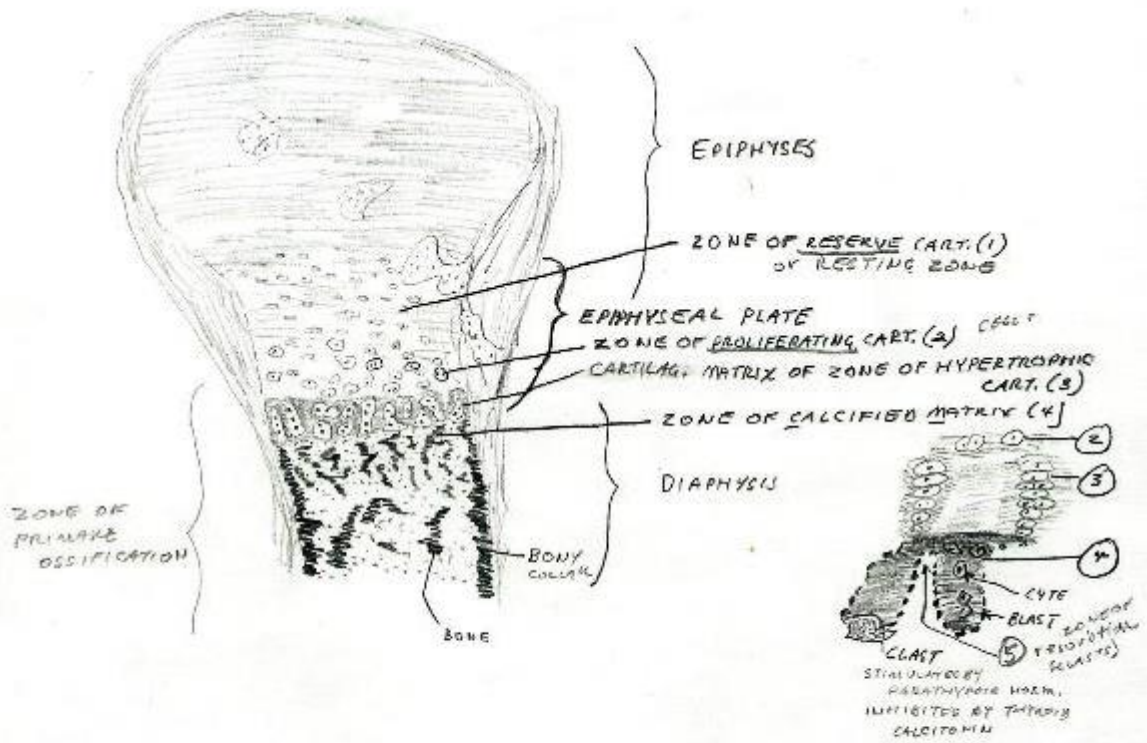 EPIPHYSES
ZONE OF RESERVE CART. (1)
or RESTING ZONE
EPIPHYSEAL PLATE
ZONE OF PROLIFERATING CART. (2) CELLS
CARTILAG. MATRIX OF ZONE OF HYPERTROPHIC
CART. (3)
ZONE OF CALCIFIED MATRIX (4)
DIAPHYSIS
ZONE OF
PRIMARY
OSSIFICATION
BONY
COLLAR
BONE
2
3
4
CYTE
BLAST
5
ZONE OF
RESORPTION
CLAST
STIMULATED BY
PARATHYROID HORM.
INHIBITED BY THYROID
CALCITONIN